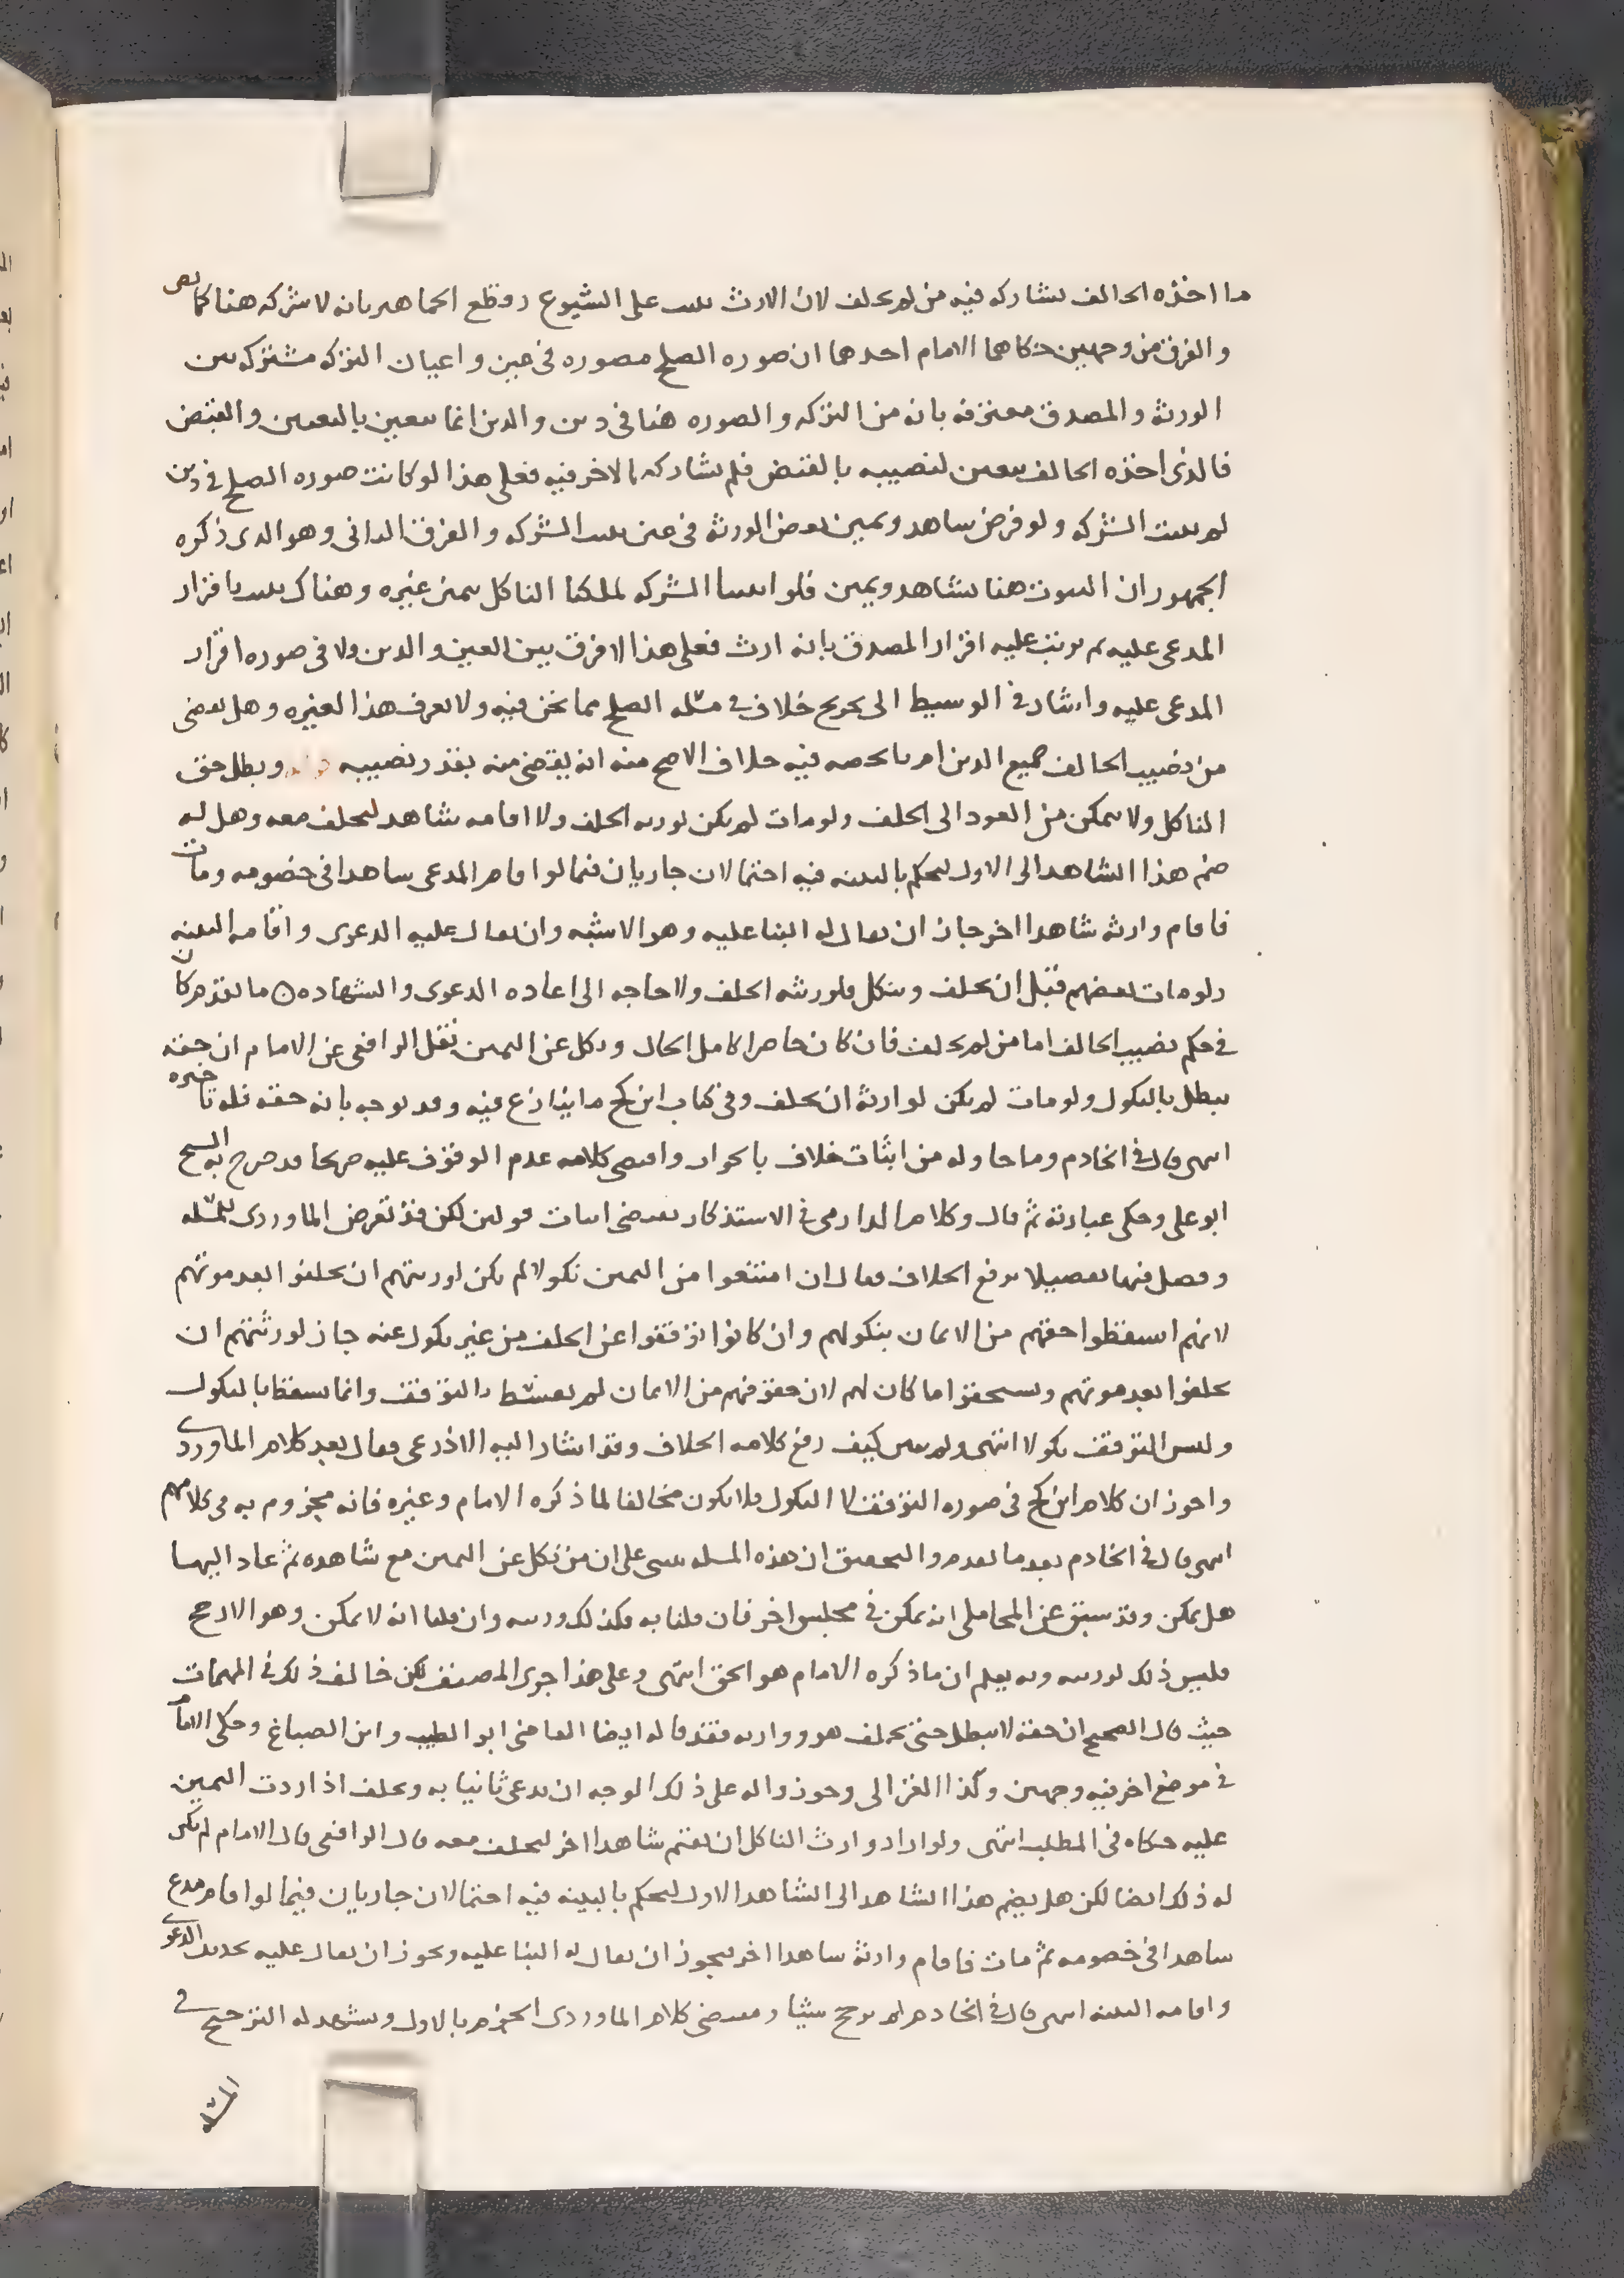 ما اخذه الحالف يشاركه فيه من لم يحلف لان الارث يثبت على الشيوع وقطع الجماهير بانه لا شركه هنا كما نص
والفرق من وجهين حكاهما الامام احدهما ان صوره الصلح مصوره في عين واعيان التركه مشتركه بين
الورثه والمصدق معترف بانه من التركه والصوره هنا في دين والدين انما يتعين بالتعيين والقبض
فالذي اخذه الحالف يتعين لنصيبه بالقبض فلم يشاركه الاخر فيه فعلى هذا لو كانت صوره الصلح في دين
لم يثبت الشركه ولو فرض شاهد ويمين بعض الورثه في عين يثبت الشركه والفرق الثاني وهو الذي ذكره
الجمهور ان الثبوت هنا بشاهد ويمين فلو اثبتنا الشركه لملكنا الناكل بيمين غيره وهناك يثبت باقرار
المدعى عليه ثم ترتب عليه اقرار المصدق بانه ارث فعلى هذا لا فرق بين العين والدين ولا في صوره اقرار
المدعى عليه واشار في الوسيط الى تخريج خلاف في مسله الصلح مما نحن فيه ولا يعرف هذا لغيره وهل يقضى
من نصيب الحالف جميع الدين ام ما يخصه فيه خلاف الاصح منه انه يقضى منه بقدر نصيبه ويطل حق
الناكل ولا يمكن من العود الى الحلف ولو مات لم يكن لورثه الحلف ولا اقامه شاهد ليحلف معه وهل له
ضم هذا الشاهد الى الاول ليحكم بالبينه فيه احتمالان جاريان فيما لو اقام المدعى شاهدا في خصومه ومات
فاقام وارثه شاهدا اخر جاز ان يقال له البنا عليه وهو الاشبه وان يقال عليه الدعوى واقامه البينه
ولو مات بعضهم قبل ان يحلف وينكل فلورثته الحلف ولا حاجه الى اعاده الدعوى والشهاده ن ما تقدم كان
في حكم نصيب الحالف اما من لم يحلف فان كان حاضرا كامل الحال ونكل عن اليمين نقل الرافعي عن الامام ان حقه
يبطل بالنكول ولو مات لم يكن لوارثه ان يحلف وفي كتاب ابن كج ما ينازع فيه وقد يوجه بانه حقه فله تاخيره
انتهى قال في الخادم وما حاوله من اثبات خلاف بالجواز واقتضى كلامه عدم الوقوف عليه صريحا قد صرح به الشيخ
ابو علي وحكى عبارته ثم قال وكلام الدارمي في الاستذكار يقتضي اثبات قولين لكن قد تعرض الماوردي للمسله
وفصل فيها تفصيلا يرفع الخلاف فقال ان امتنعوا من اليمين نكولا لم يكن لورثتهم ان يحلفوا بعد موتهم
لانهم اسقطوا حقهم من الايمان بنكولهم وان كانوا توقفوا عن الحلف من غير نكول عنه جاز لورثتهم ان
يحلفوا بعد موتهم ويستحقوا ما كان لهم لان حقوقهم من الايمان لم يسقط بالتوقف وانما يسقط بالنكول
وليس التوقف نكولا انتهى ولم يبين كيف رفع كلامه الخلاف وقد اشار اليه الاذرعي فقال بعد كلام الماوردي
واحوز ان كلام ابن كج في صوره التوقف لا النكول فلا يكون مخالفا لما ذكره الامام وغيره فانه مجزوم به في كلامهم
انتهى قال في الخادم بعد ما تقدم والتحقيق ان هذه المسله تبنى على ان من نكل عن اليمين مع شاهده ثم عاد اليها
هل يمكن وقد سبق عن المحاملي انه يمكن في مجلس اخر فان قلنا به فكذلك ورثته وان قلنا انه لا يمكن وهو الارجح
فليس ذلك لورثته وبه يعلم ان ما ذكره الامام هو الحق انتهى وعلى هذا جرى المصنف لكن خالف ذلك في المهمات
حيث قال الصحيح ان حقه لا يبطل حتى يحلف هو ووارثه فقد قاله ايضا القاضي ابو الطيب وابن الصباغ وحكى الامام
في موضع اخر فيه وجهين وكذا الغزالي وجوز واله على ذلك الوجه ان يدعي ثانيا به ويحلف اذا ردت اليمين
عليه حكاه في المطلب انتهى ولو اراد وارث الناكل ان يقيم شاهدا اخر ليحلف معه قال الرافعي قال الامام لم يكن
له ذلك ايضا لكن هل يضم هذا الشاهد الى الشاهد الاول ليحكم بالبينه فيه احتمالان جاريان فيما لو اقام مدع
شاهدا في خصومه ثم مات فاقام وارثه شاهدا اخر فيجوز ان يقال له البنا عليه ويجوز ان يقال عليه تجديد الدعوى
واقامه البينه انتهى قال في الخادم لم يرجح شيئا ومقتضى كلام الماوردي الجزم بالاول ويشهد له الترجيح في
المسله